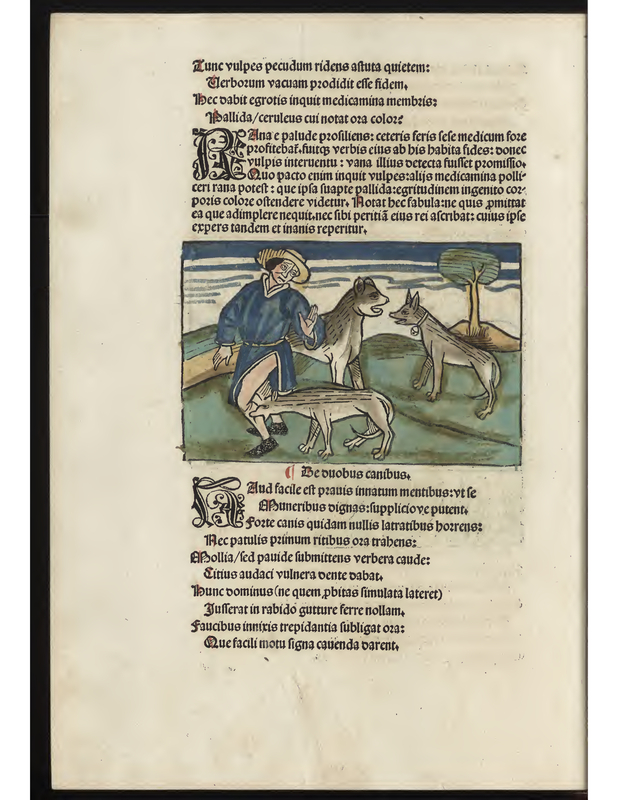 Tunc vulpes pecudum ridens astuta quietem:
Verborum vacuam prodidit esse fidem.
Hec dabit egrotis inquit medicamina membris:
Pallida/ceruleus cui notat ora color?
RAna e palude prosiliens: ceteris feris sese medicum fore
profitebat̃. fuitqȝ verbis eius ab his habita fides: donec
vulpis interuentu: vana illius detecta fuisset promissio.
Quo pacto enim inquit vulpes: alijs medicamina polli-
ceri rana potest: que ipsa suapte pallida: egritudinem ingenito cor-
poris colore ostendere videtur. Notat hec fabula: ne quis ꝓmittat
ea que adimplere nequit. nec sibi peritiā eius rei ascribat: cuius ipse
expers tandem et inanis reperitur.
¶ De duobus canibus.
HAud facile est prauis innatum mentibus: vt se
Muneribus dignas: supplicioꝫe putent.
Forte canis quidam nullis latratibus horrens:
Nec patulis primum ritibus ora trahens:
Mollia/sed pauide submittens verbera caude:
Citius audaci vulnera dente dabat.
Hunc dominus (ne quem ꝓbitas simulata lateret)
Iusserat in rabido gutture ferre nollam.
Faucibus innixis trepidantia subligat ora:
Que facili motu signa cauenda darent.